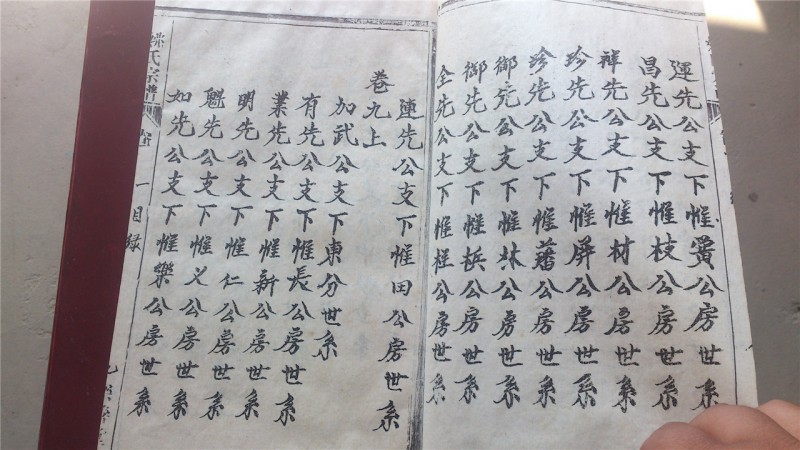 運先公支下惟簧公房世系
昌先公支下惟枝公房世系
祥先公支下惟材公房世系
珍先公支下惟屏公房世系
珍先公支下惟藩公房世系
御先公支下惟林公房世系
御先公支下惟梹公房世系
全先公支下惟桎公房世系
連先公支下惟田公房世系
卷九上
加武公支下東分世系
有先公支下惟長公房世系
業先公支下惟新公房世系
明先公支下惟仁公房世系
魁先公支下惟义公房世系
如先公支下惟樂公房世系
氏宗譜
一目録